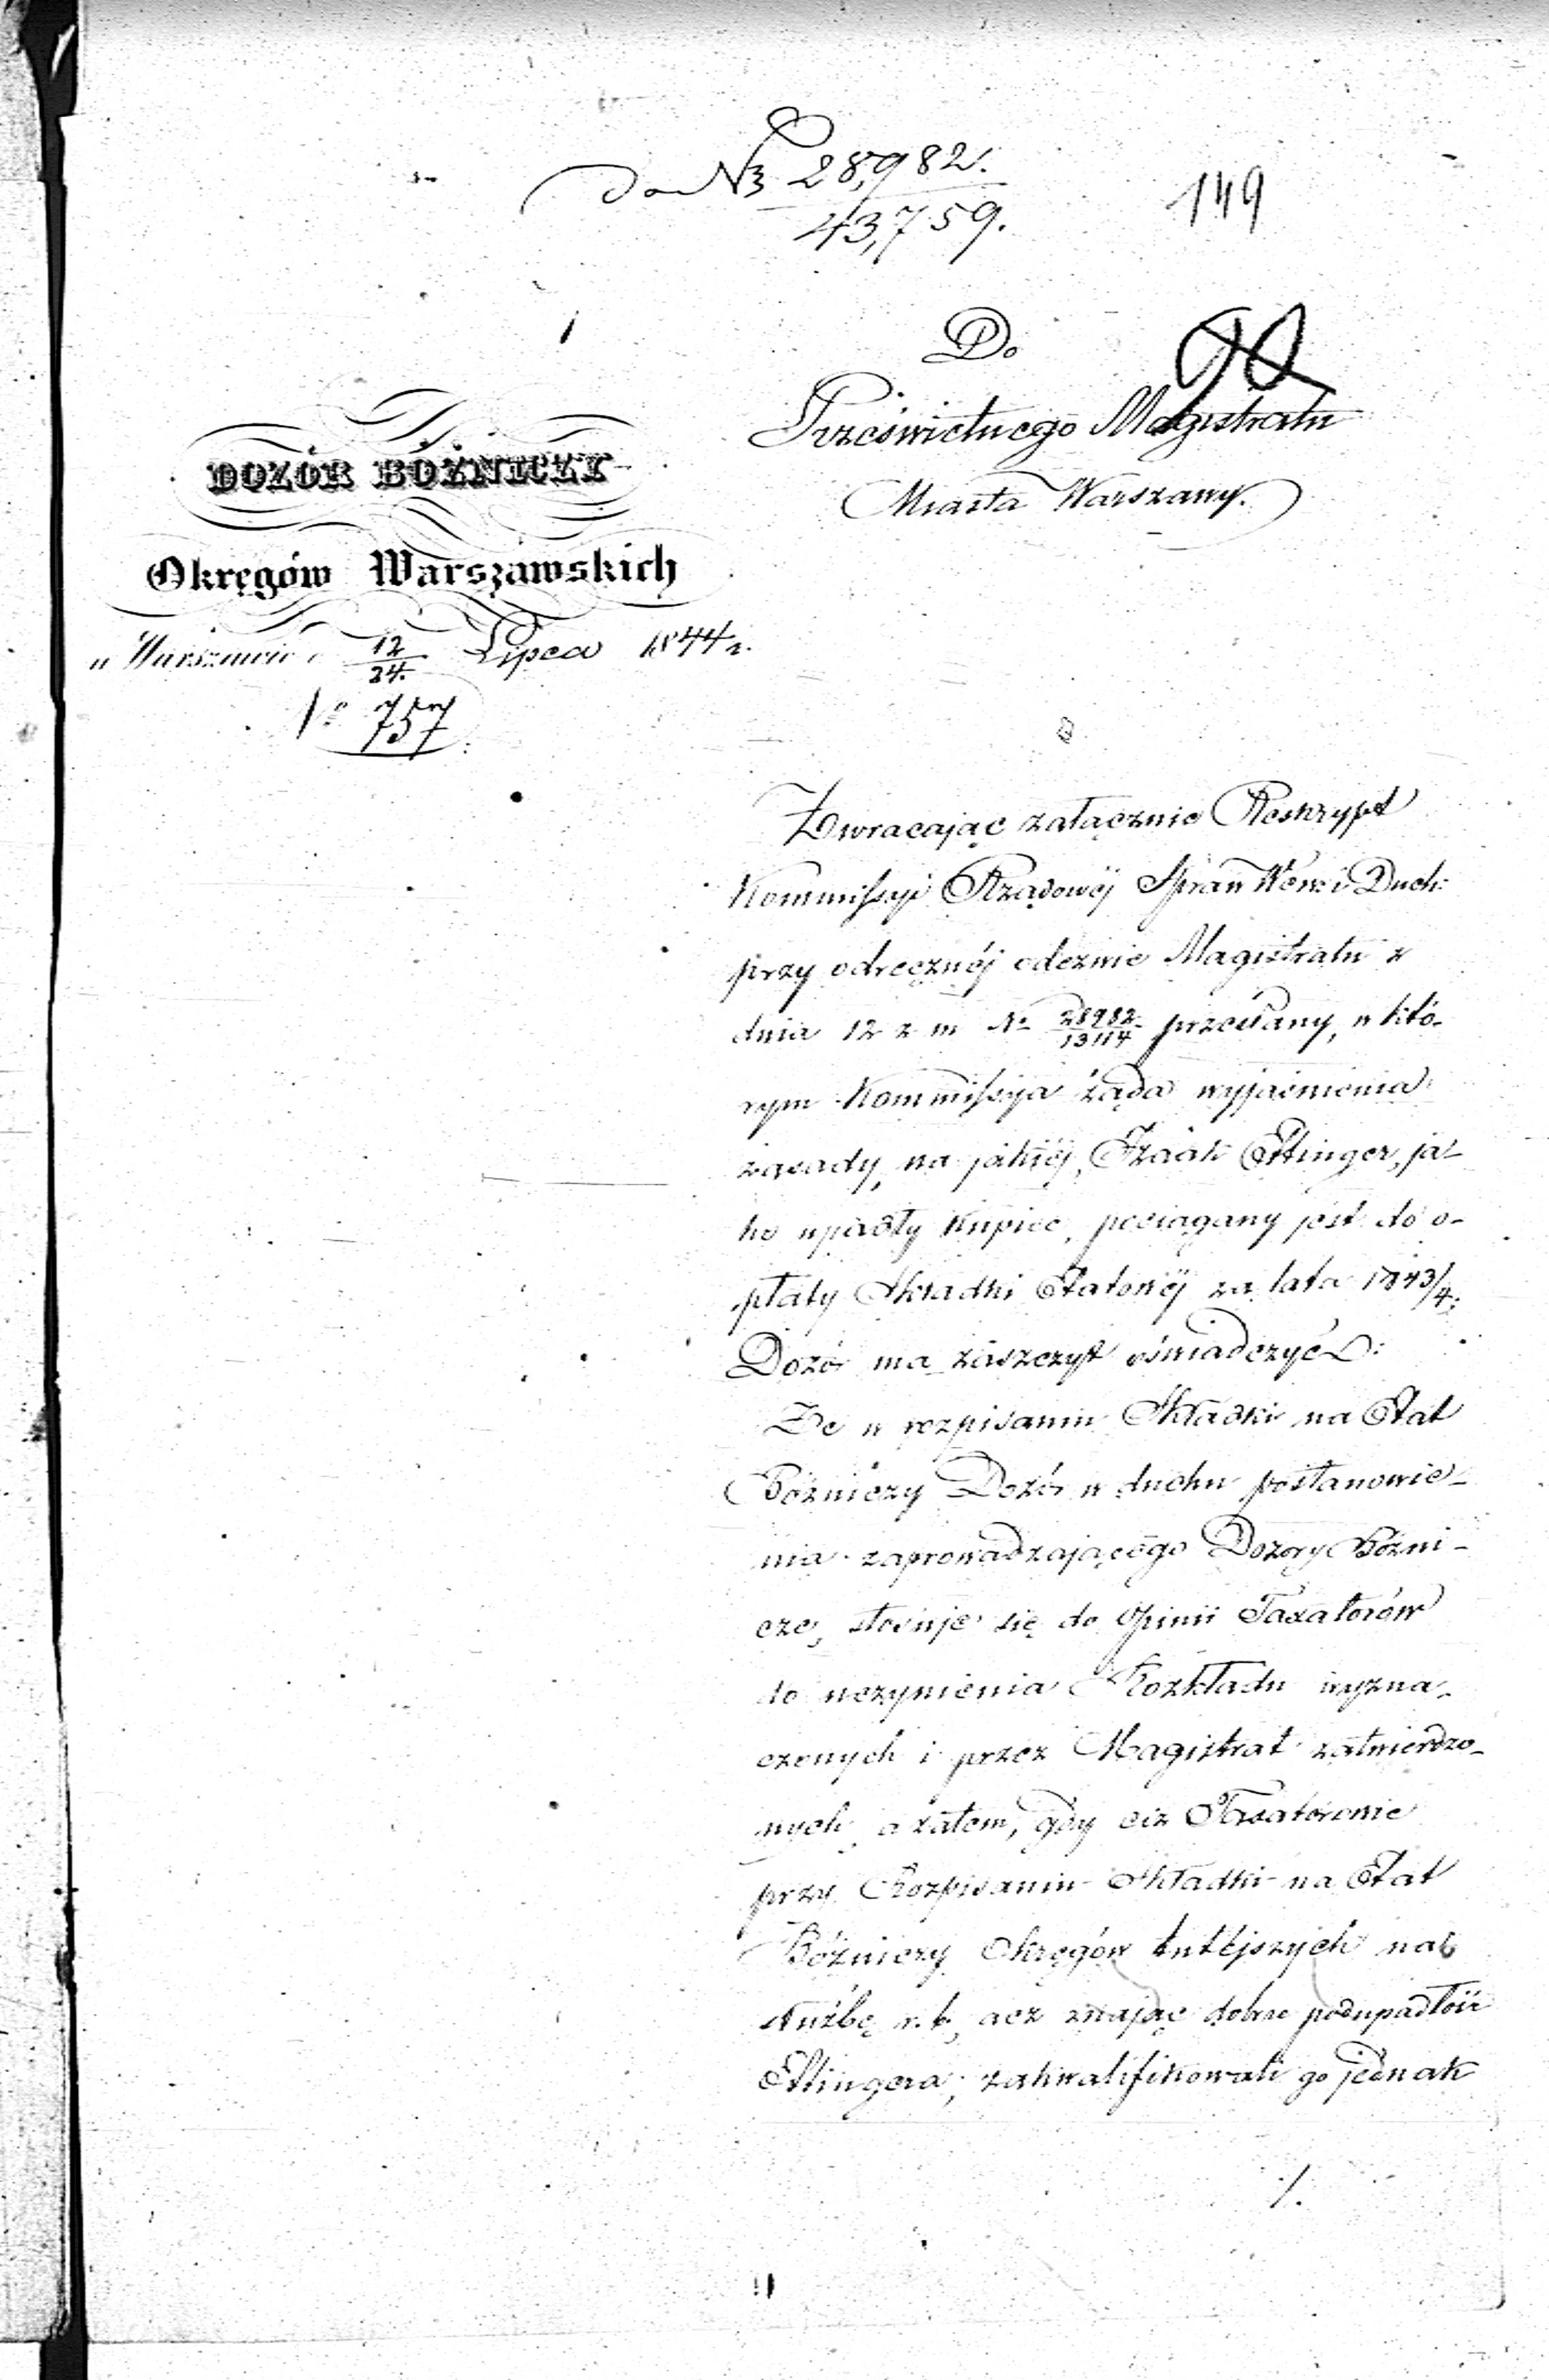 do N 28,982.
43,759.
149
90
Do
Prześwietnego Magistratu
Miasta Warszawy.
DOZÓR BÓŻNICZY
Okręgów Warszawskich
w Warszawie d 12/24. Lipca 1844 r.
N 757
Zwracając załącznie Reskrypt
Kommissyi Rządowéj Spraw Wew: i Duch:
przy odręcznéj odezwie Magistratu z
dnia 12 z m N 28982/13114 przesłany, w któ-
rym Kommissya żąda wyjaśnienia
zasady, na jakiéj, Izaak Ettinger, ja-
ko upadły Kupiec, pociągany jest do o-
płaty Składki Etatowéj za lata 1843/4;
Dozór ma zaszczyt oświadczyć:
Że w rozpisaniu Składki na Etat
Bóżniczy Dozór w duchu postanowie-
nia zaprowadzającego Dozory Bóżni-
cze, stosuje się do Opinii Taxatorów
do uczynienia Rozkładu wyzna-
czonych i przez Magistrat zatwierdzo-
nych, a zatem, gdy ciż Taxatorowie
przy Rozpisaniu Składki na Etat
Bóżniczy Okręgów tutéjszych na
służbę r. b., acz znając dobrze podupadłość
Ettingera, zakwalifikowali go jednak
./.